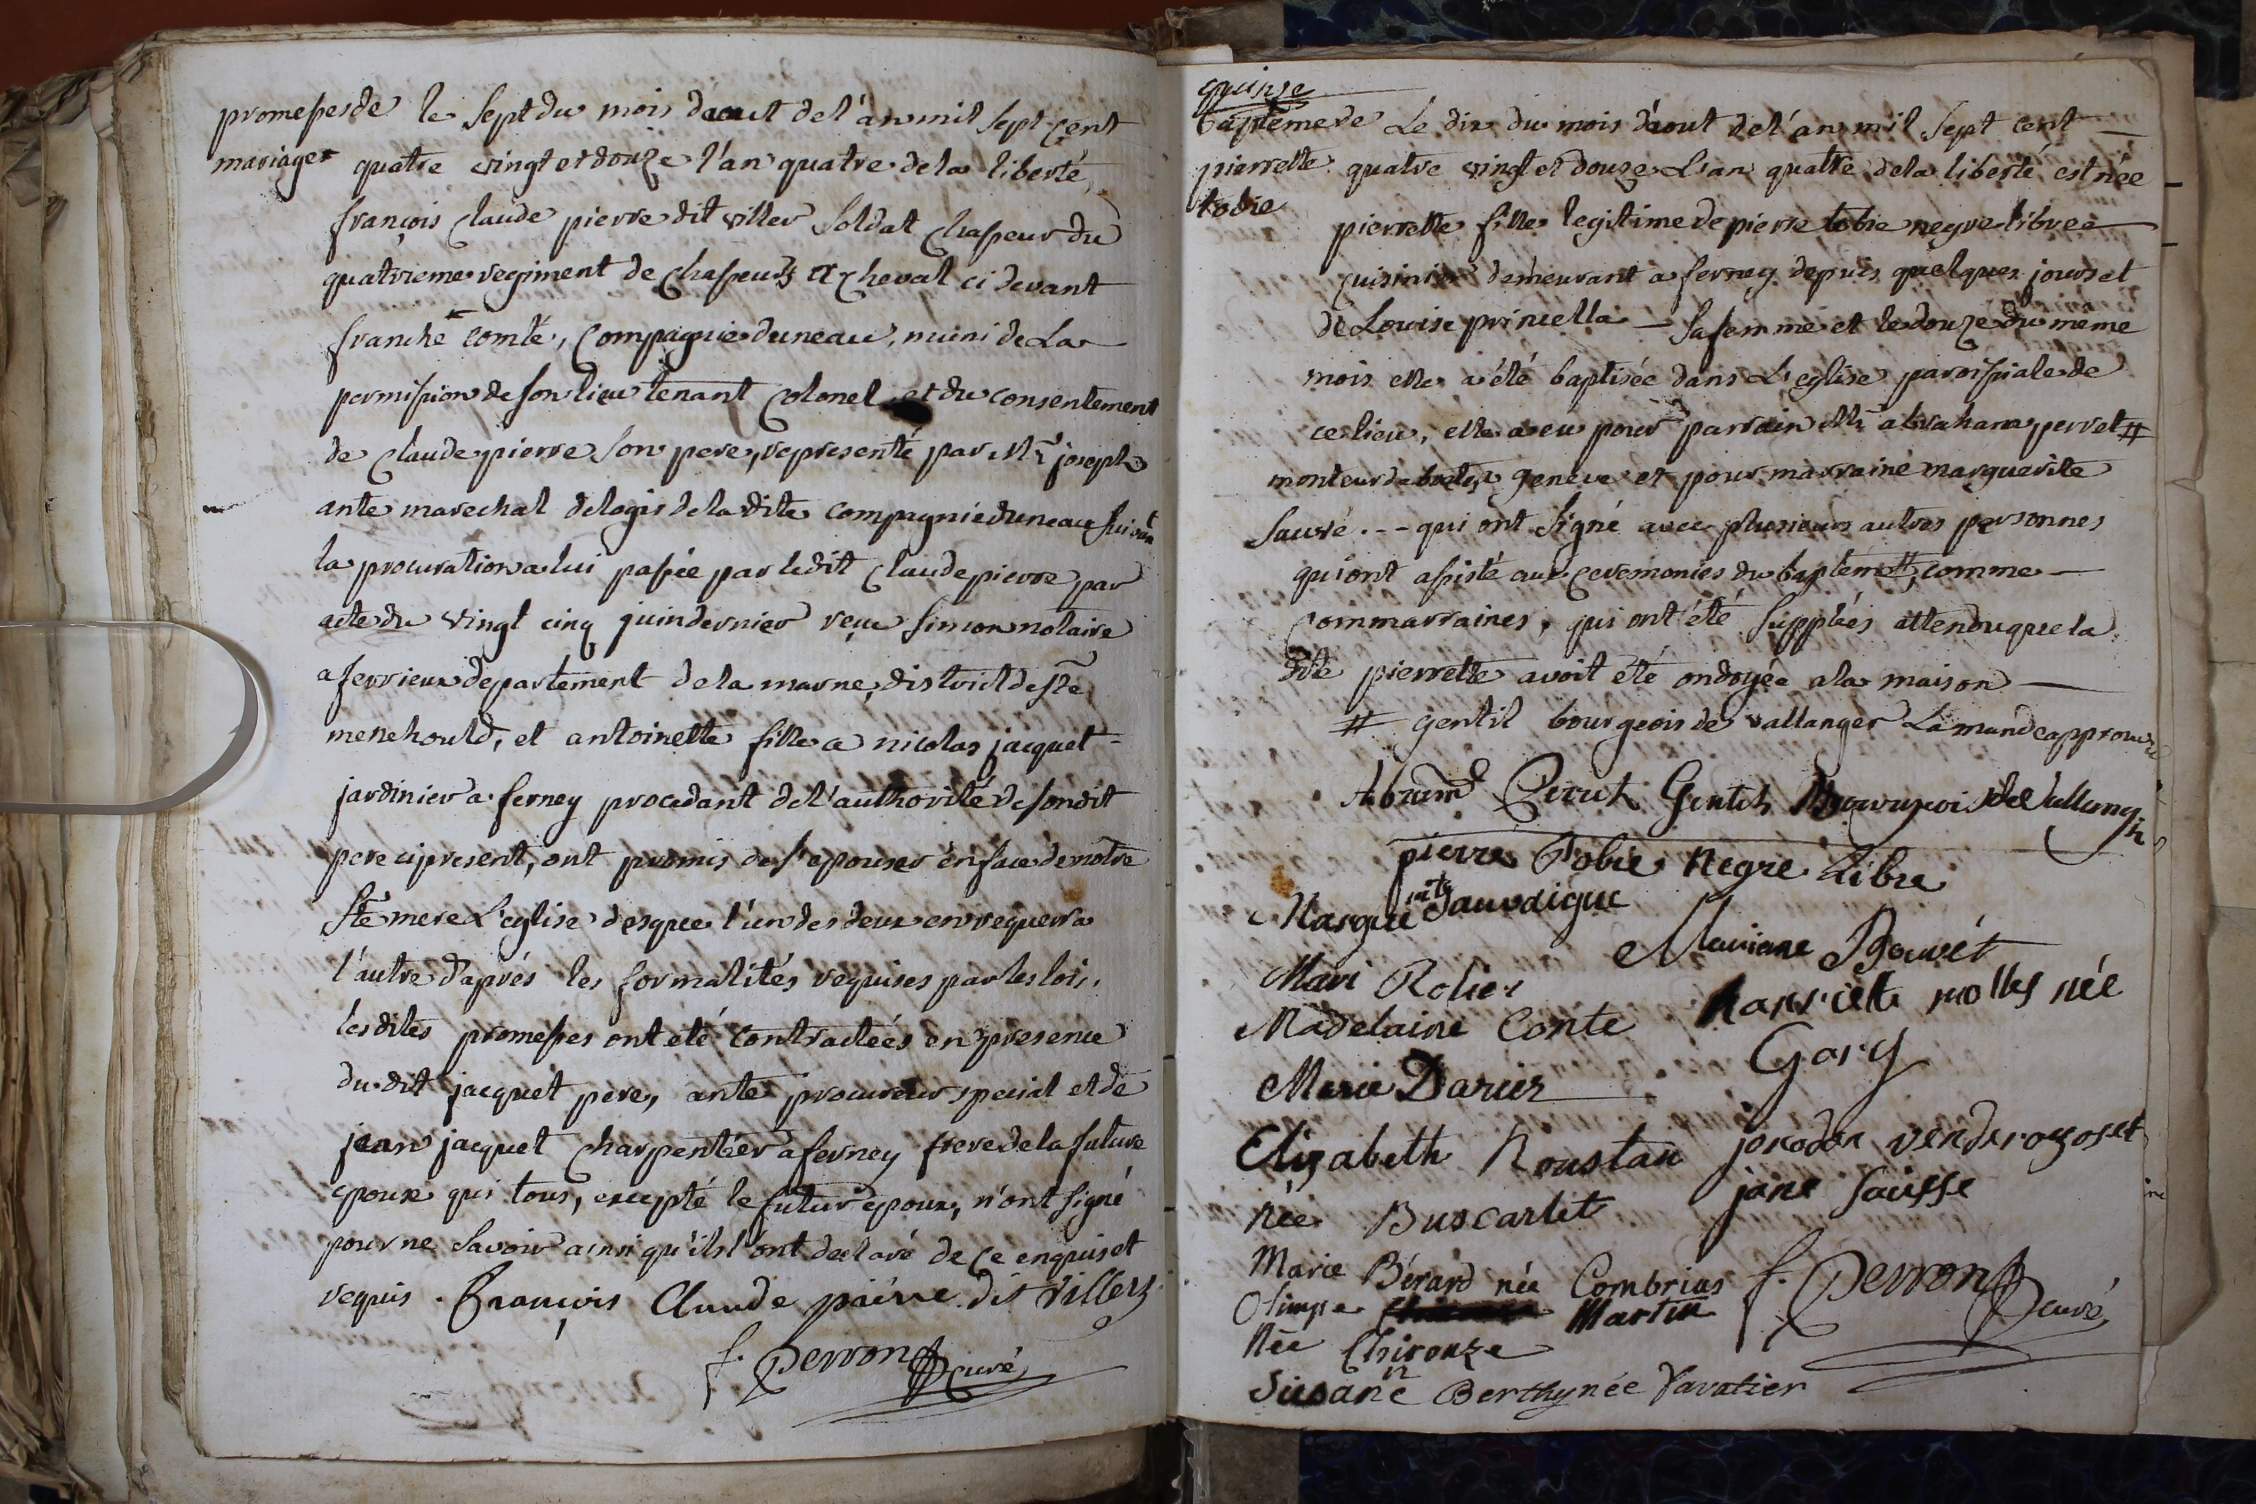 promesses de
mariage
le sept du mois d'aout de l'an mil sept cent
quatre vingt et douze l'an quatre de la liberté,
françois claude pierre dit viller soldat chasseur du
quatrieme regiment de chasseurs a cheval ci devant
franche comté, compagnie duneau, muni de la
permission de son lieutenant colonel et du consentement
de claude pierre son pere, representé par Mr joseph
ante marechal de logis de la dite compagnie duneau suivant
la procuration a lui passée par le dit claude pierre par
acte du vingt cinq juin dernier reçu simon notaire
a ferrieux departement de la marne, district de ste
menehould, et antoinette fille a nicolas jacquet
jardinier a ferney procedant de l'authorité de son dit
pere ci present, ont promis de s'epouser en face de notre
Ste mere L'eglise des que l'un des deux en requerra
l'autre d'aprés les formalités requises par les lois.
les dites promesses ont eté contractées en presence
du dit jacquet pere, ante procureur special et de
jean jacquet charpentier a ferney frere de la future
epouse qui tous, excepté le futur epoux, n'ont signé
pour ne savoir ainsi qu'ils l'ont declaré de ce enquis et
requis. François Claude pairre dit villers
f. Perron curé
quinze
baptème de
pierrette
tobie
Le dix du mois d'aout de l'an mil sept cent
quatre vingt et douze L'an quatre de la liberté est née
pierrette fille legitime de pierre tobie negre libre
cuisinier demeurant a ferney depuis quelques jours et
de Louise prinella sa femme et le douze du meme
mois elle a été baptisée dans L'eglise paroissiale de
ce lieu, elle a eu pour parrain Mr abraham perret #
monteur de boites a geneve et pour marraine marguerite
Sauvé . - - qui ont signé avec plusieurs autres personnes
qui ont assisté aux ceremonies du baptême #, comme
commarraines, qui ont été suppléés attendu que la
dite pierrette avoit été ondoyée a la maison
# gentil bourgeois de vallanger Lamande approuvé
Abram Perret Gentil Bourgois de Vallangin
pierre Tobie Negre Libre
Margueritte Sauvaigue
Mariane Bouvét
Mari Rolier
harriette molles née
Gary
Madelaine Conte
Marie Darier
Elizabeth Roustan
née Buscarlet
jane Saisse
Marie Bérard née Combrias
Olimpe Martin
Née Chironze
f. Perron curé
Susane Berthy née Vavatier